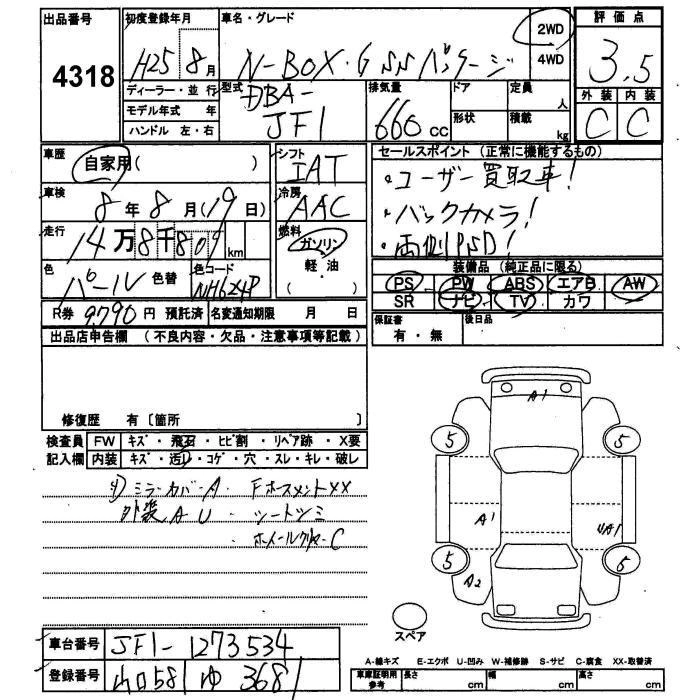 出品番号
4318
初度登録年月
H25 8月
車名・グレード
N-BOX・G SSパッケージ
2WD
4WD
評価点
3.5
外装 内装
C C
ディーラー・並行
モデル年式 年
ハンドル 左・右
型式
DBA-
JF1
排気量
660 cc
ドア
形状
定員
人
積載
kg
車歴
自家用( )
車検
8年8月(19日)
走行
14万8千80 km
色
パール 色替
色コード
NH624P
シフト
IAT
冷房
AAC
燃料
ガソリン
軽・油
( )
セールスポイント (正常に機能するもの)
・ユーザー買取車!
・バックカメラ!
・両側PSD!
装備品 (純正品に限る)
PS PW ABS エアB AW
SR ナビ TV カワ
R券 9,790円 預託済
名変通知期限 月 日
保証書
有・無
後日品
出品店申告欄 (不良内容・欠品・注意事項等記載)
修復歴 有〔箇所 〕
検査員 FW キズ・飛石・ヒビ割・リペア跡・X要
記入欄 内装 キズ・汚レ・コゲ・穴・スレ・キレ・破レ
ミラーカバーA・
外装AU・シートシミ
C
A1
5 5
A1
A1
5 5
A2
スペア
車台番号 JF1-1273534
登録番号 山口581 ゆ 3681
A-線キズ E-エクボ U-凹み W-補修跡 S-サビ C-腐食 XX-取替済
車庫証明用
参考
長さ cm
幅 cm
高さ cm